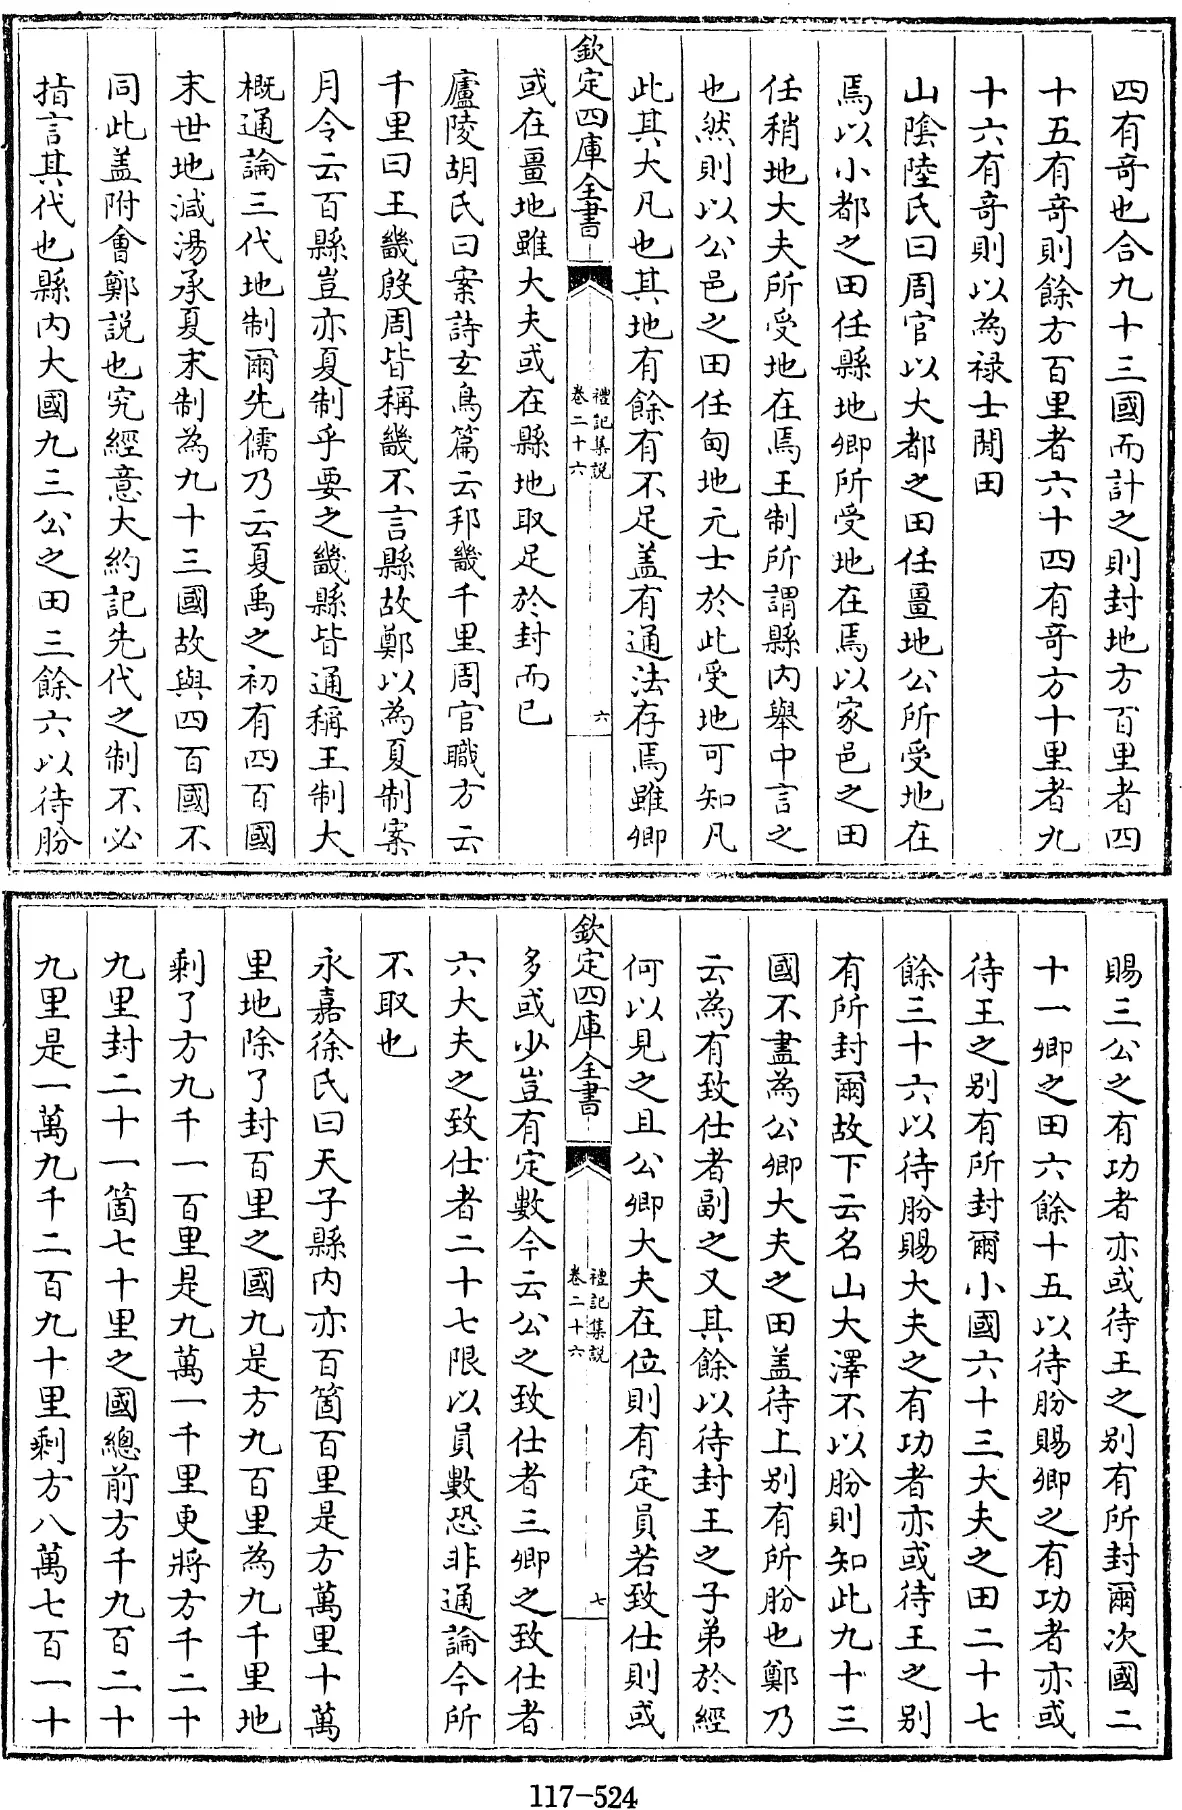 四有竒也合九十三國而計之則封地方百里者四
十五有竒則餘方百里者六十四有竒方十里者九
十六有竒則以為禄士閒田
山隂陸氏曰周官以大都之田任畺地公所受地在
焉以小都之田任縣地卿所受地在焉以家邑之田
任稍地大夫所受地在焉王制所謂縣内舉中言之
也然則以公邑之田任甸地元士於此受地可知凡
此其大凡也其地有餘有不足盖有通法存焉雖卿
欽定四庫全書
禮記集説
卷二十六
六
或在畺地雖大夫或在縣地取足於封而已
廬陵胡氏曰案詩玄鳥篇云邦畿千里周官職方云
千里曰王畿殷周皆稱畿不言縣故鄭以為夏制案
月令云百縣豈亦夏制乎要之畿縣皆通稱王制大
概通論三代地制爾先儒乃云夏禹之初有四百國
末世地減湯承夏末制為九十三國故與四百國不
同此盖附會鄭説也究經意大約記先代之制不必
指言其代也縣内大國九三公之田三餘六以待朌
賜三公之有功者亦或待王之别有所封爾次國二
十一卿之田六餘十五以待朌賜卿之有功者亦或
待王之别有所封爾小國六十三大夫之田二十七
餘三十六以待朌賜大夫之有功者亦或待王之别
有所封爾故下云名山大澤不以朌則知此九十三
國不盡為公卿大夫之田盖待上别有所朌也鄭乃
云為有致仕者副之又其餘以待封王之子弟於經
何以見之且公卿大夫在位則有定員若致仕則或
欽定四庫全書
禮記集説
卷二十六
七
多或少豈有定數今云公之致仕者三卿之致仕者
六大夫之致仕者二十七限以員數恐非通論今所
不取也
永嘉徐氏曰天子縣内亦百箇百里是方萬里十萬
里地除了封百里之國九是方九百里為九千里地
剩了方九千一百里是九萬一千里更將方千二十
九里封二十一箇七十里之國總前方千九百二十
九里是一萬九千二百九十里剩方八萬七百一十
117-524